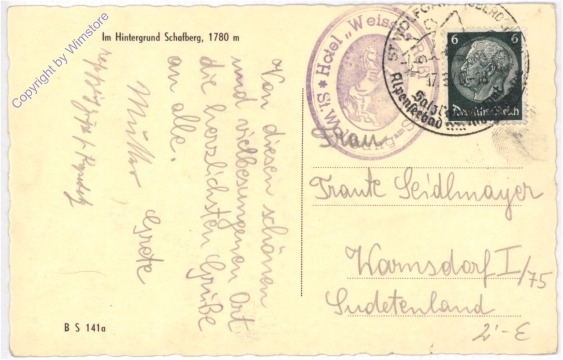 Im Hintergrund Schafberg, 1780 m
Von diesen schönen
und vielbesungenen Ort
die herzlichsten Grüße
an alle.
Mutter, Grete
B S 141a
Copyright by Wimstore
* Hotel „Weisses
St. Wolfgang
ST. WOLFGANG
Alpenseebad
6 6
Deutsches Reich
Frau
Traute Seidlmayer
Warnsdorf I/75
Sudetenland
2'-E